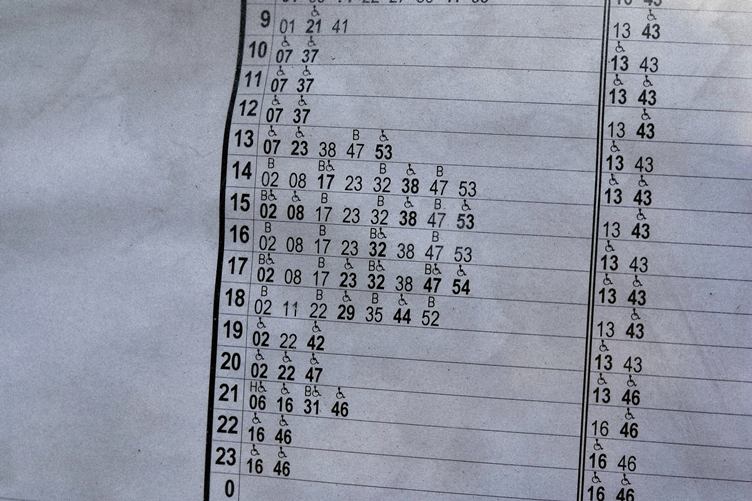 9 01 21 41 13 43
10 07 37 13 43
11 07 37 13 43
12 07 37 13 43
B
13 07 23 38 47 53 13 43
B B B B
14 02 08 17 23 32 38 47 53 13 43
B B B B
15 02 08 17 23 32 38 47 53 13 43
B B B B
16 02 08 17 23 32 38 47 53 13 43
B B B B
17 02 08 17 23 32 38 47 54 13 43
B B B B
18 02 11 22 29 35 44 52 13 43
19 02 22 42 13 43
20 02 22 47 13 46
H B
21 06 16 31 46 16 46
22 16 46 16 46
23 16 46 16 46
0